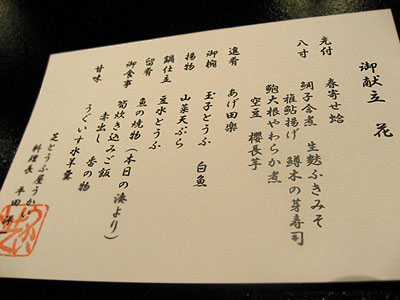 御献立 花
先付 春寄せ蛤
八寸 鯛子含煮 生麩ふきみそ
稚鮎揚げ 鱒木の芽寿司
鮑大根やわらか煮
空豆 櫻長芋
進肴 あげ田楽
御椀 玉子とうふ 白魚
揚物 山菜天ぷら
鍋仕立 豆水とうふ
留肴 魚の焼物(本日の湊より)
御食事 筍炊き込みご飯
赤出し 香の物
甘味 うぐいす水羊羹
芝とうふ屋うかい
料理長 平田